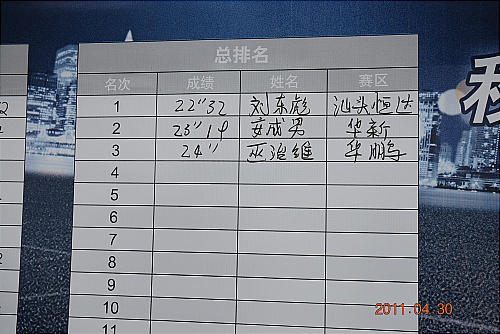 总排名
名次 成绩 姓名 赛区
1 22"32 刘东彪 汕头恒达
2 23"14 安成男 华新
3 24" 巫治维 华鹏宇
4
5
6
7
8
9
10
11
2011.04.30